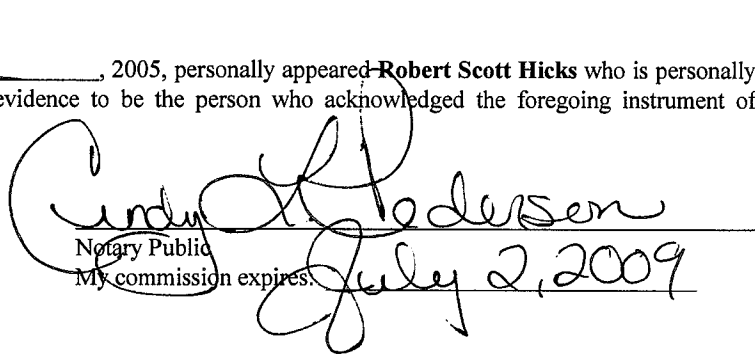 , 2005, personally appeared Robert Scott Hicks who is personally
evidence to be the person who acknowledged the foregoing instrument of
Cindy L. Pedersen
Notary Public
My commission expires: July 2, 2009